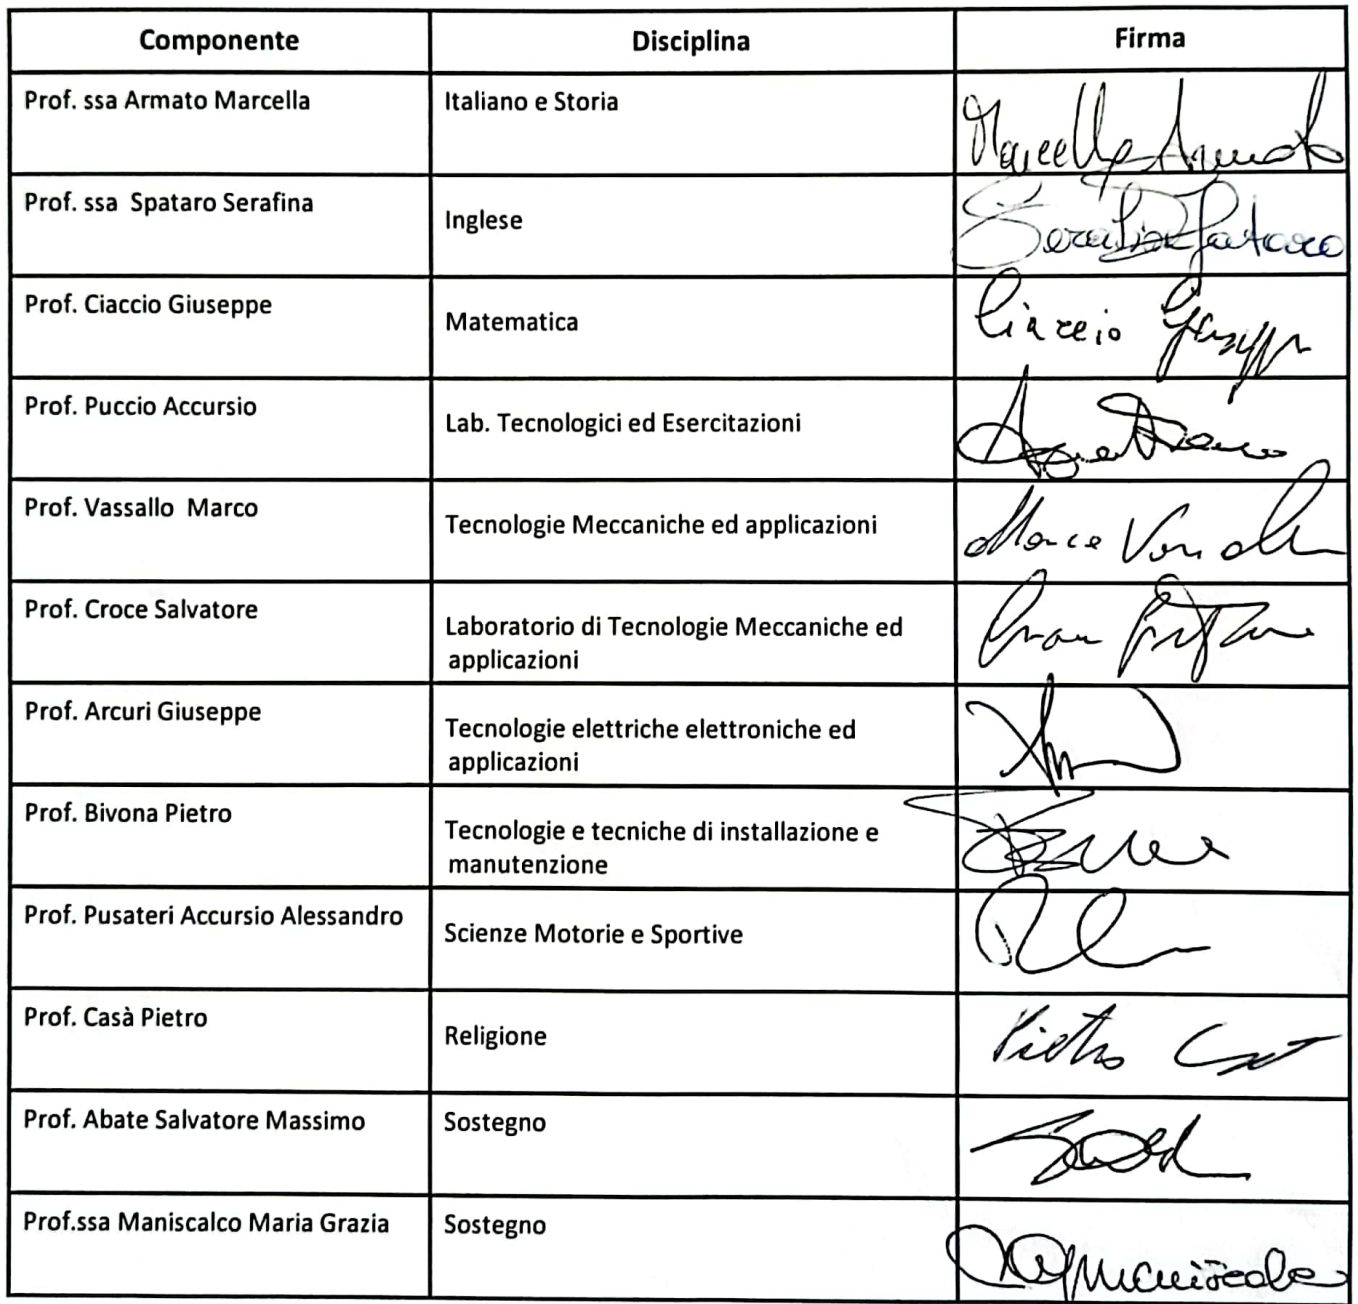 Componente Disciplina Firma
Prof. ssa Armato Marcella Italiano e Storia Marcella Armato
Prof. ssa Spataro Serafina Inglese Serafina Spataro
Prof. Ciaccio Giuseppe Matematica Ciaccio Giuseppe
Prof. Puccio Accursio Lab. Tecnologici ed Esercitazioni
Prof. Vassallo Marco Tecnologie Meccaniche ed applicazioni Marco Vassallo
Prof. Croce Salvatore Laboratorio di Tecnologie Meccaniche ed
applicazioni
Prof. Arcuri Giuseppe Tecnologie elettriche elettroniche ed
applicazioni
Prof. Bivona Pietro Tecnologie e tecniche di installazione e
manutenzione
Prof. Pusateri Accursio Alessandro Scienze Motorie e Sportive
Prof. Casà Pietro Religione Pietro
Prof. Abate Salvatore Massimo Sostegno
Prof.ssa Maniscalco Maria Grazia Sostegno Maniscalco